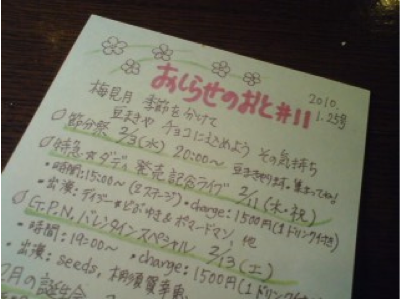 おしらせのおと#11
2010.
1.25号
梅見月 季節を分けて
豆まきや チョコにこめよう その気持ち
節分祭 2/3(水) 20:00~ 豆まきやります。集まってね!
特急☆ダディ 発売記念ライブ 2/11(木・祝)
・時間:15:00~(2ステージ)・charge:1500円(1ドリンク付き)
・出演:デイジー☆どぶゆき&ポマードマン、他
G.P.N.バレンタインスペシャル 2/13(土)
・時間:19:00~ ・charge:1500円(1ドリンク付き)
・出演:seeds,
2月の誕生会